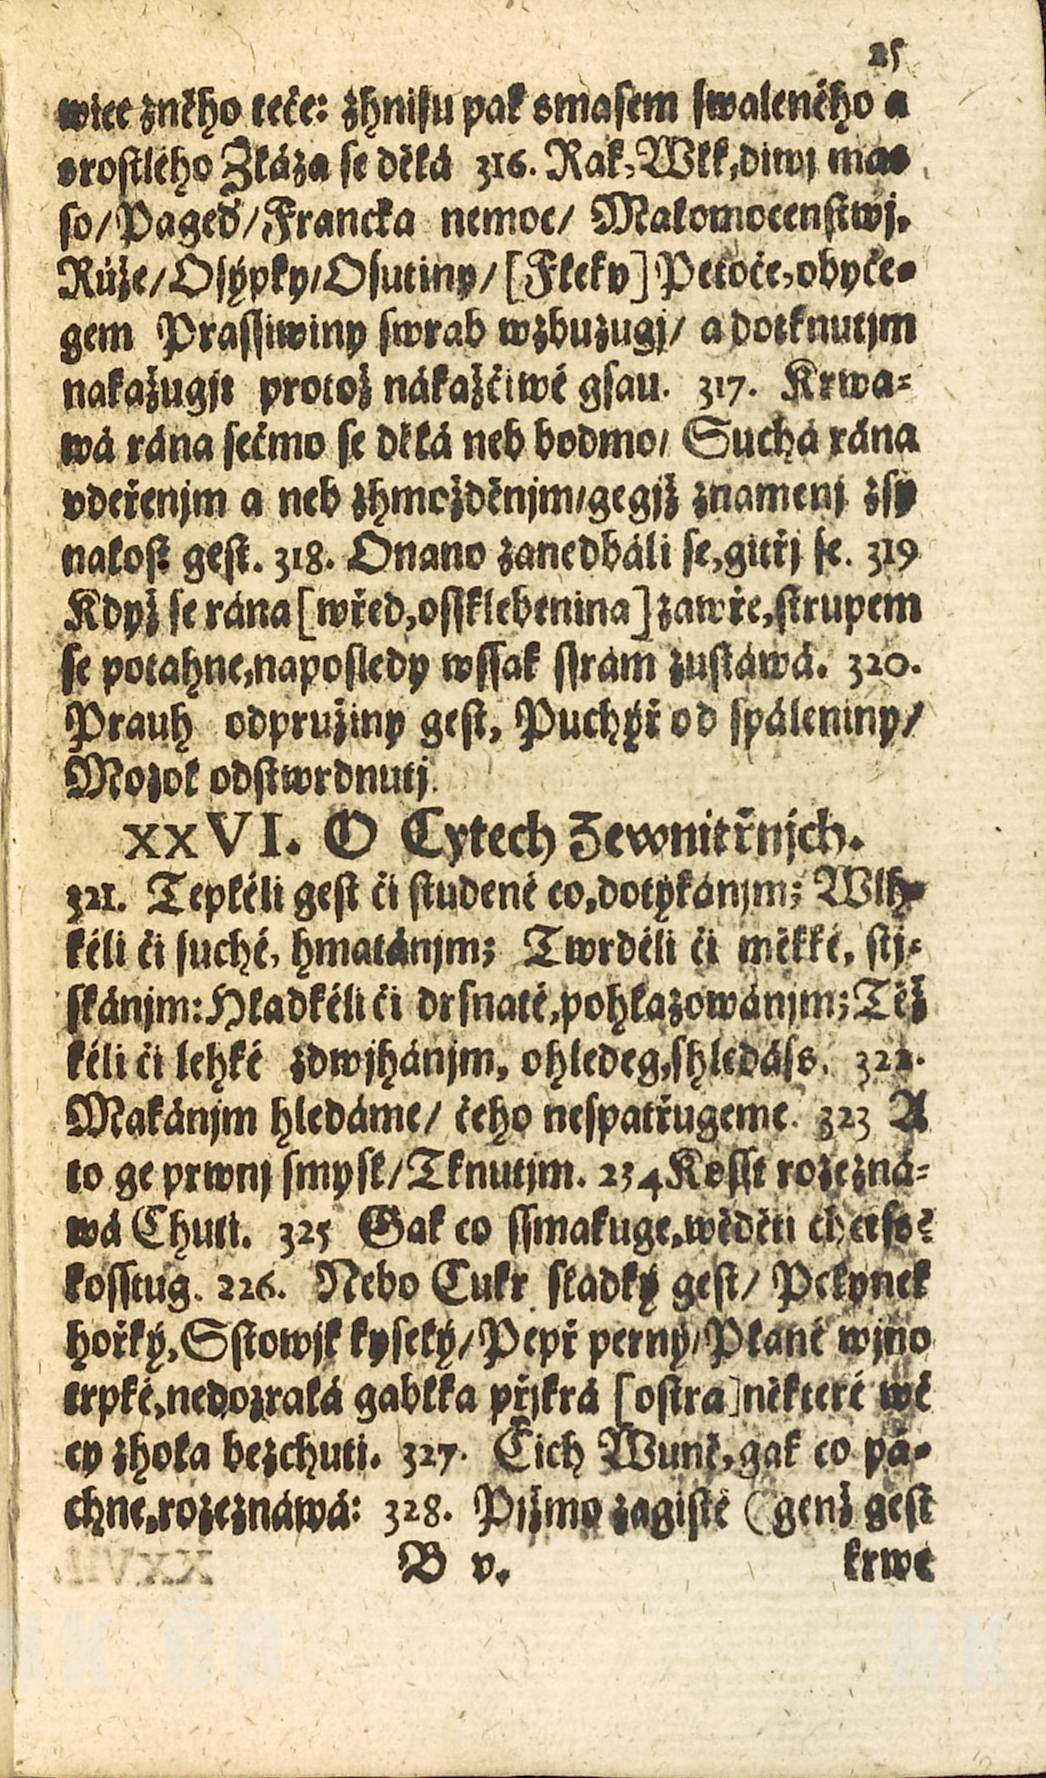 25
wice zněho teče: zhnisu pak smasem swaleného a
srostlého Zkáza se děłá 316. Rak, Włk, diwj mas
so/ Paged/ Francka nemoc/ Małomocenstwj,
Růže/ Osýpky/ Osutiny/ [Fłeky] Petoče, obyče-
gem Prassiwiny swrab wzbuzugj/ a dotknutjm
nakažugjt protož nákažčiwé gsau. 317. Krwa-
wá rána sečmo se děłá neb bodmo/ Suchá rána
vdeřenjm a neb zhmožděnjm/ gegjž znamenj zsy
nałost gest. 318. Onano zanedbáli se, gitřj se. 319
Když se rána [wřed, ossklebenina] zawře, strupem
se potahne, naposledy wssak ssrám zustáwá. 320.
Prauh odpružiny gest, Puchýř od spáleniny/
Mozoł odstwrdnutj.
xxVI. O Cytech Zewnitřnjch.
321. Tepłéli gest či studené co, dotýkánjm; Wlh-
kéli či suché, hmatánjm; Twrdéli či měkké, stj-
skánjm: Hładkéli či drsnaté, pohłazowánjm; Těž
kéli či lehké zdwjhánjm, ohledeg, shledáss. 322.
Makánjm hledáme/ čeho nespatřugeme. 323 A
to ge prwnj smysł/ Tknutjm. 234 Kosst rozezná-
wá Chuti. 325 Gak co ssmakuge, wěděti chcesse
kosstug. 226. Nebo Cukr sładký gest/ Pełynek
hořký, Sstowjk kyselý/ Pepř perný/ Płané wjno
trpké, nedozrałá gabłka přjkrá [ostra] některé wě
cy zhoła bezchuti. 327. Čich Wuně, gak co pá-
chne, rozeznáwá: 328. Pižmo zagisté (genž gest
B v. krwe